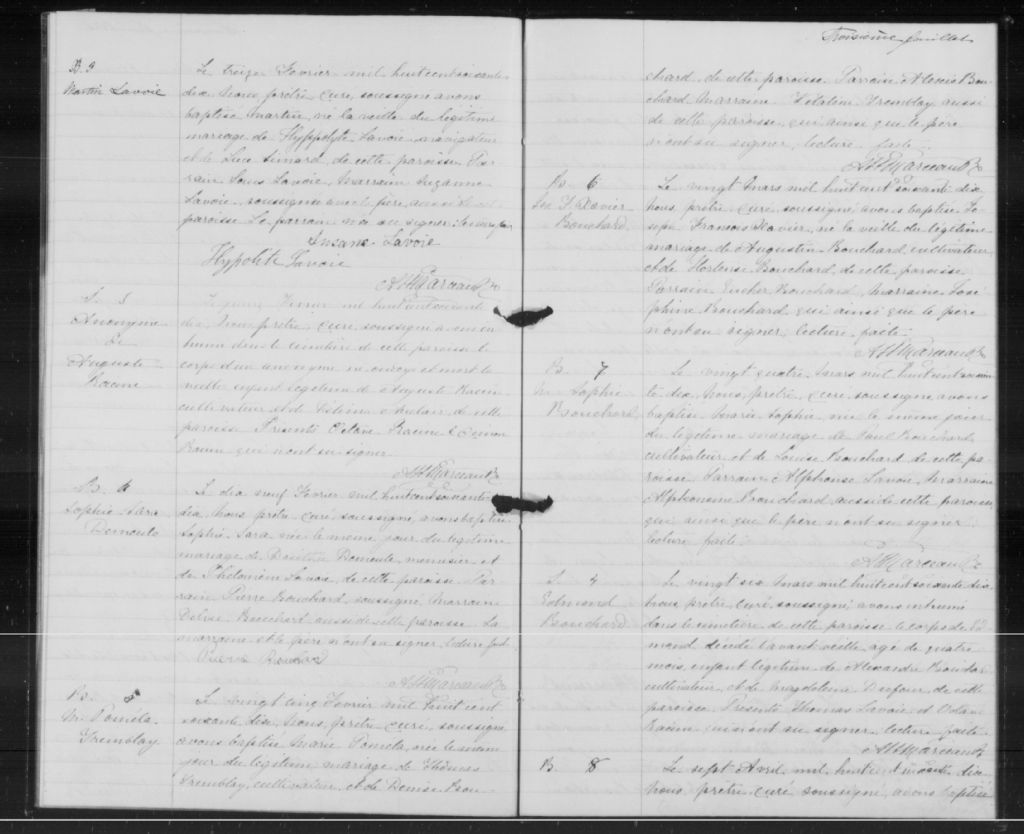 B. 3
Martin Lavoie
Le treize Fevrier mil huit cent soixante
dix, Nous, prêtre, curé, soussigné avons
baptisé Martin, né la veille du légitime
mariage de Hyppolyte Lavoie navigateur
et de Luce Simard, de cette paroisse. Par
rain Louis Lavoie, Marraine Suzanne
Lavoie, soussignée avec le père, aussi de
paroisse. Le parrain n'a su signer.
Susane Lavoie
Hypolite Lavoie
S.
Anonyme
de
Auguste
Racine
Fevrier mil huit cent soixante
dix, Nous prêtre, curé, soussigné avons in
humé dans le cimetière de cette paroisse le
corps d'un anonyme, né ondoyé et mort la
veille enfant légitime de Auguste Racine
cultivateur et de de cette
paroisse Présents Octave Racine &
Racine qui n'ont su signer
B.
Sophie Sara
Le dix neuf Fevrier mil huit cent soixante
dix, Nous, prêtre, curé, soussigné, avons baptisé
Sophie Sara née le même jour du légitime
mariage de menuisier et
de Lavoie de cette paroisse. Par
rain Pierre Bouchard, soussigné, Marraine
Bouchard aussi de cette paroisse. La
marraine et le père n'ont su signer. Lecture faite
Pierre Bouchard
B.
M. Paméla
Tremblay
Le vingt cinq Fevrier mil huit cent
soixante dix, Nous, prêtre, curé, soussigné
avons baptisé Marie Pamela, née le même
jour du légitime mariage de Thomas
Tremblay, cultivateur, et de Denise Bou-
Troisième feuillet
chard de cette paroisse. Parrain Alexis Bou
chard, Marraine Tremblay aussi
de cette paroisse, qui ainsi que le père
n'ont su signer, lecture faite.
B. 6
Jos. F. Xavier
Bouchard
Le vingt Mars mil huit cent soixante dix
Nous, prêtre, curé, soussigné avons baptisé Jo
seph François Xavier, né la veille du légitime
mariage de Augustin Bouchard, cultivateur
et de Hortense Bouchard, de cette paroisse
Parrain Eucher Bouchard, Marraine José
phine Bouchard qui ainsi que le père
n'ont su signer, lecture faite.
B. 7
M. Sophie
Bouchard
Le vingt quatre Mars mil huit cent soixan
te dix, Nous, prêtre, curé, soussigné avons
baptisé Marie Sophie, née le même jour
du légitime mariage de Paul Bouchard
cultivateur et de Louise Bouchard de cette pa
roisse. Parrain Alphonse Lavoie, Marraine
Alphonsine Bouchard, aussi de cette paroisse
qui ainsi que le père n'ont su signer
lecture faite
S. 4
Edmond
Bouchard
Le vingt six Mars mil huit cent soixante dix
Nous prêtre, curé, soussigné, avons inhumé
dans le cimetière de cette paroisse le corps de Ed
mond décédé l'avant veille, agé de quatre
mois, enfant légitime de Alexandre Bouchard
cultivateur, et de Magdeleine Dufour de cette
paroisse. Présents Thomas Lavoie et
Racine qui n'ont su signer, lecture faite.
B. 8
Le sept Avril mil huit cent soixante dix
Nous, prêtre, curé soussigné, avons baptisé